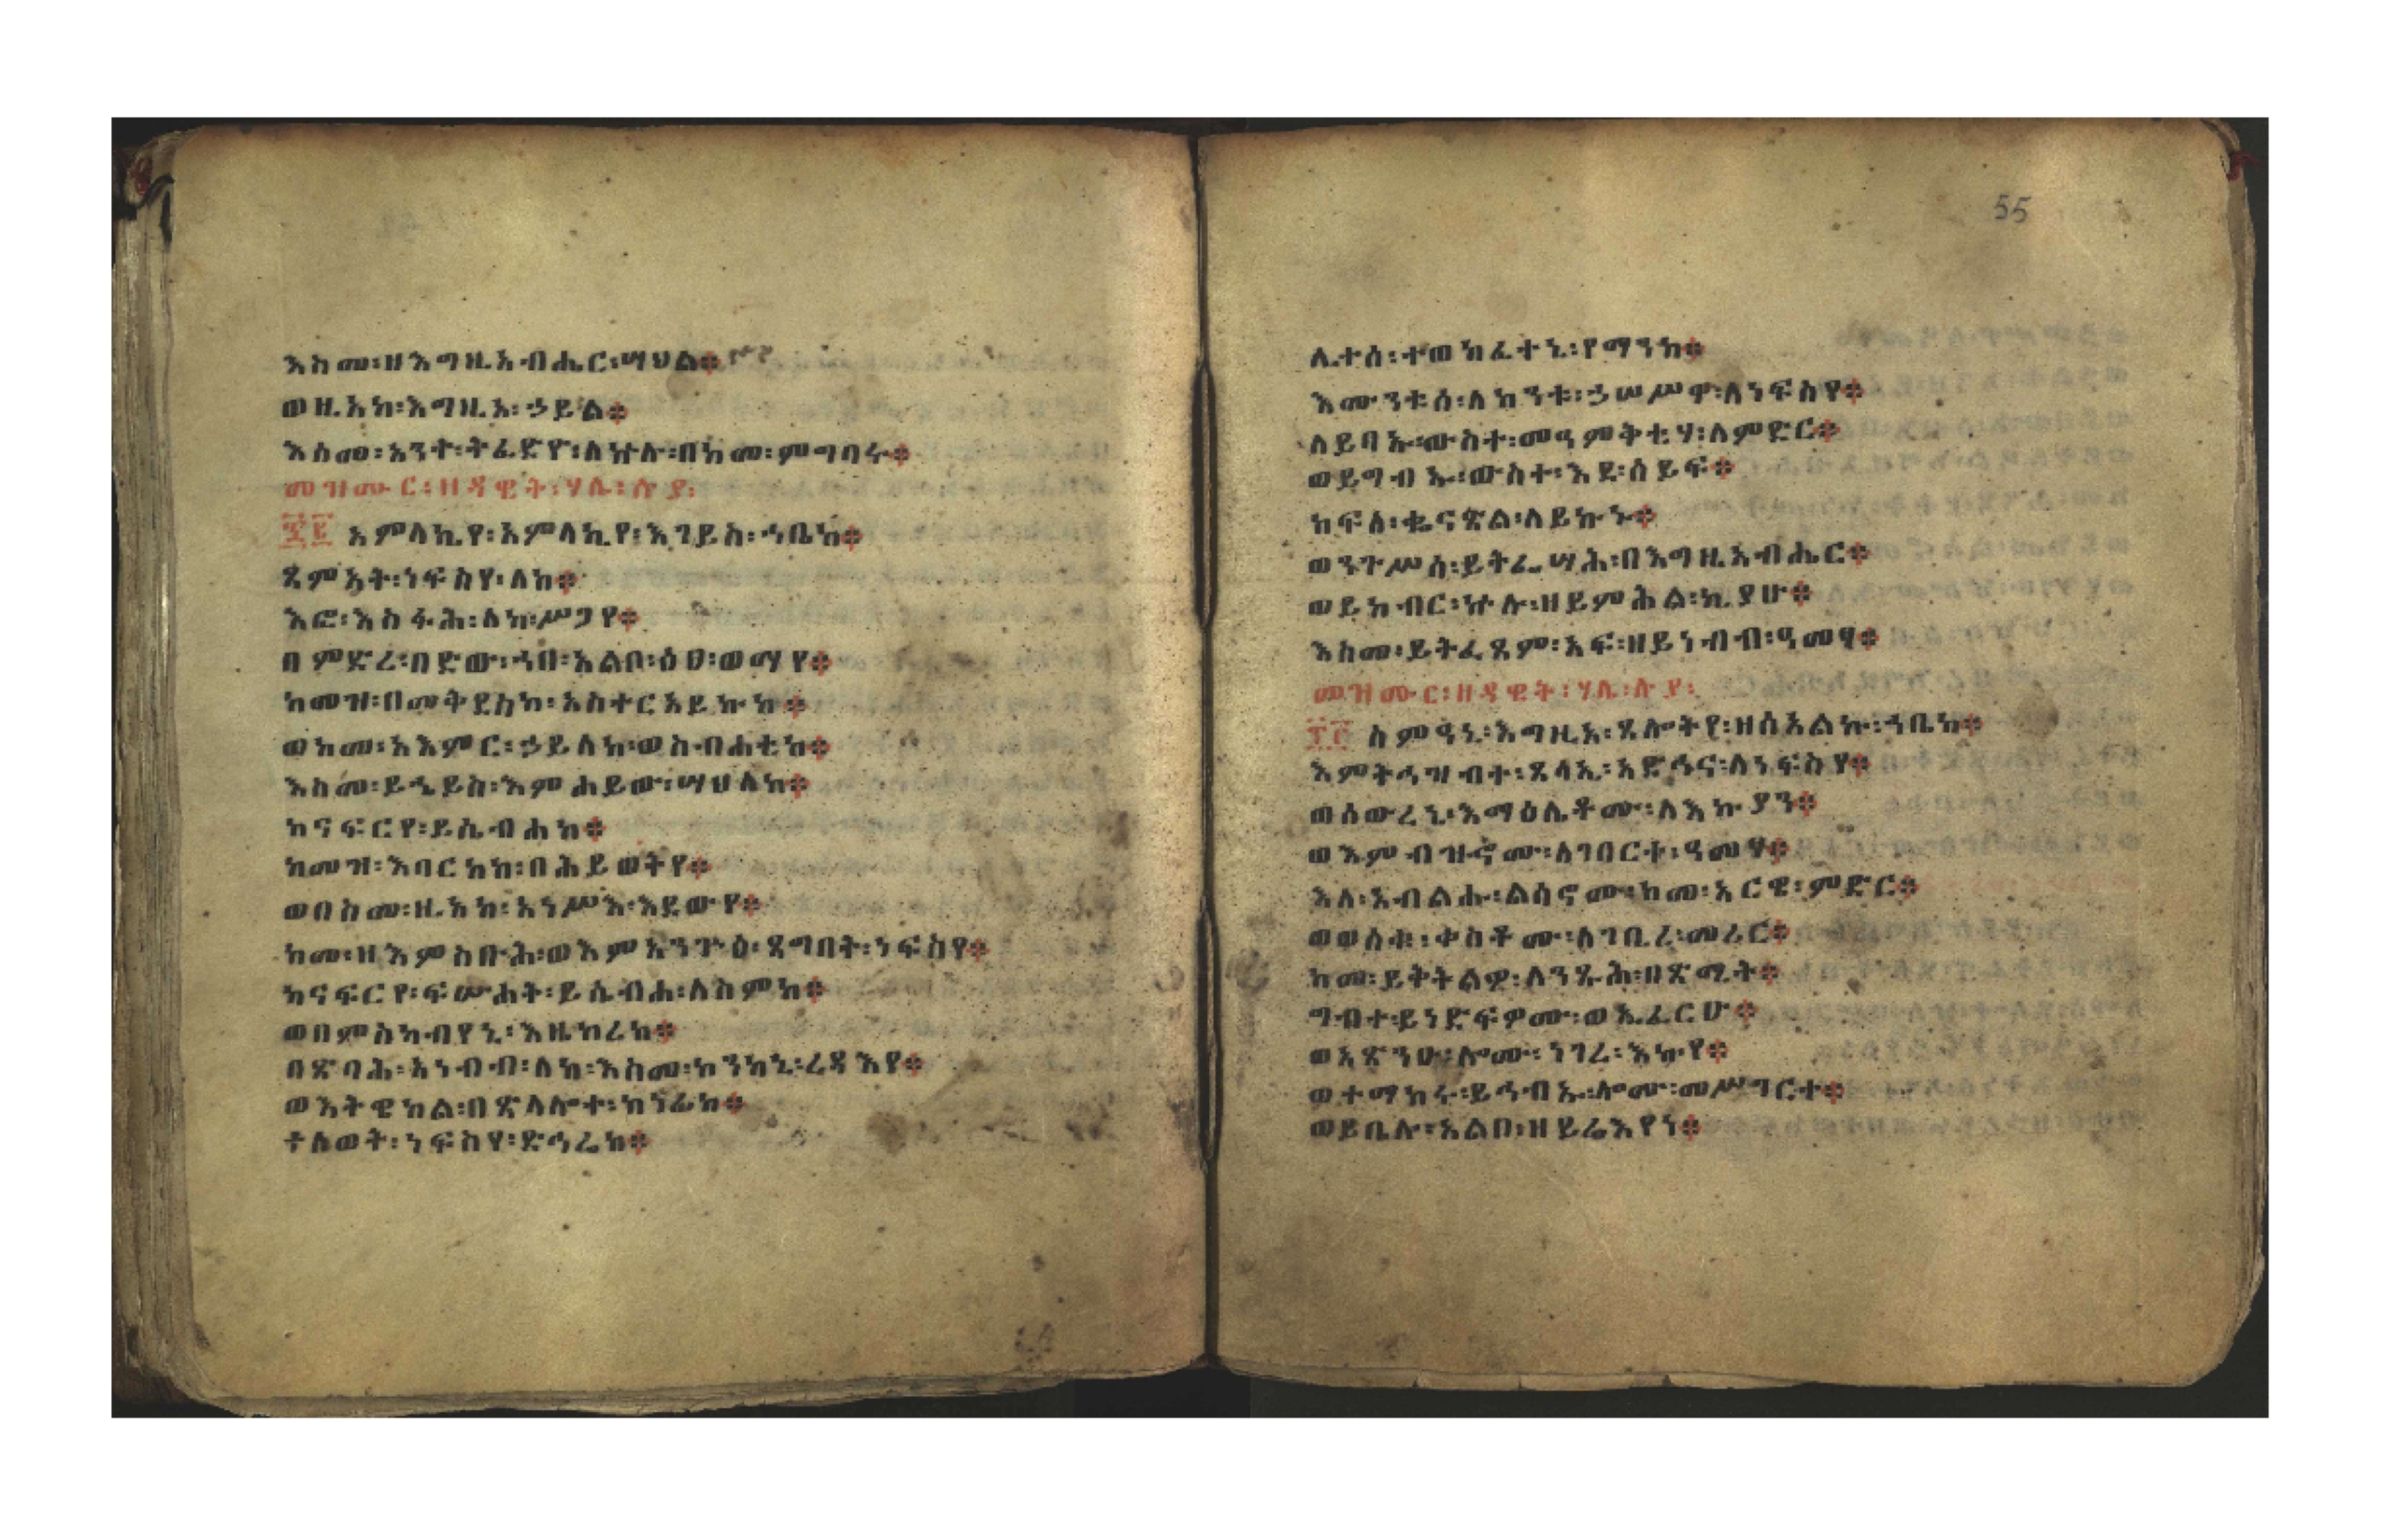 እስመ፡ዘእግዚአብሔር፡ሣህል፨
ወዚአከ፡እግዚአ፡ኃይል፨
እስመ፡አንተ፡ትፈድዮ፡ለኵሉ፡በከመ፡ምግባሩ፨
መዝሙር፡ዘዳዊት፡ሃሌ፡ሉያ፡
፷፪ አምላኪየ፡አምላኪየ፡እገይስ፡ኀቤከ፨
ጸምአት፡ነፍስየ፡ለከ፨
እፎ፡እስፋሕ፡ለከ፡ሥጋየ፨
በምድረ፡በድው፡ኀበ፡አልቦ፡ዕፀ፡ወማየ፨
ከመዝ፡በመቅደስከ፡አስተርአይኩከ፨
ወከመ፡አእምር፡ኃይለከ፡ወስብሐቲከ፨
እስመ፡ይኄይስ፡እምሐይው፡ሣህለከ፨
ከናፍርየ፡ይሴብሐከ፨
ከመዝ፡እባርከከ፡በሕይወትየ፨
ወበስመ፡ዚአከ፡አነሥእ፡እደውየ፨
ከመ፡ዘእምስቡሕ፡ወእምአንጕዕ፡ጸግበት፡ነፍስየ፨
ከናፍርየ፡ፍሡሐት፡ይሴብሐ፡ለስምከ፨
ወበምስካብየኒ፡እዜከረከ፨
በጽባሕ፡አነብብ፡ለከ፡እስመ፡ኮንከኒ፡ረዳእየ፨
ወእትዌከል፡በጽላሎተ፡ከነፊከ፨
ተለወት፡ነፍስየ፡ድኅሬከ፨
55
ሊተሰ፡ተወክፈተኒ፡የማንከ፨
እሙንቱሰ፡ለከንቱ፡ኃሠሥዋ፡ለነፍስየ፨
ለይባኡ፡ውስተ፡መዓምቅቲሃ፡ለምድር፨
ወይግብኡ፡ውስተ፡እደ፡ሰይፍ፨
ክፍለ፡ቈናጽል፡ለይኩኑ፨
ወንጉሥሰ፡ይትፌሣሕ፡በእግዚአብሔር፨
ወይከብር፡ኵሉ፡ዘይምሕል፡ኪያሁ፨
እስመ፡ይትፈጸም፡አፍ፡ዘይነብብ፡ዓመፃ፨
መዝሙር፡ዘዳዊት፡ሃሌ፡ሉያ፡
፷፫ ስምዓኒ፡እግዚአ፡ጸሎትየ፡ዘሰአልኩ፡ኀቤከ፨
እምትሓዝብተ፡ጸላኢ፡አድኅና፡ለነፍስየ፨
ወሰውረኒ፡እማዕሌቶሙ፡ለእኩያን፨
ወእምብዝኖሙ፡ለገበርተ፡ዓመፃ፨
እለ፡አብልሑ፡ልሳኖሙ፡ከመ፡አርዌ፡ምድር፨
ወወሰቁ፡ቀስቶሙ፡ለገቢረ፡መሪር፨
ከመ፡ይቅትልዎ፡ለንጹሕ፡በጽሚት፨
ግብተ፡ይነድፍዎሙ፡ወኢፈርሁ፨
ወአጽንዑ፡ሎሙ፡ነገረ፡እኩየ፨
ወተማከሩ፡ይኅብኡ፡ሎሙ፡መሥገርተ፨
ወይቤሉ፡አልቦ፡ዘይሬእየነ፨